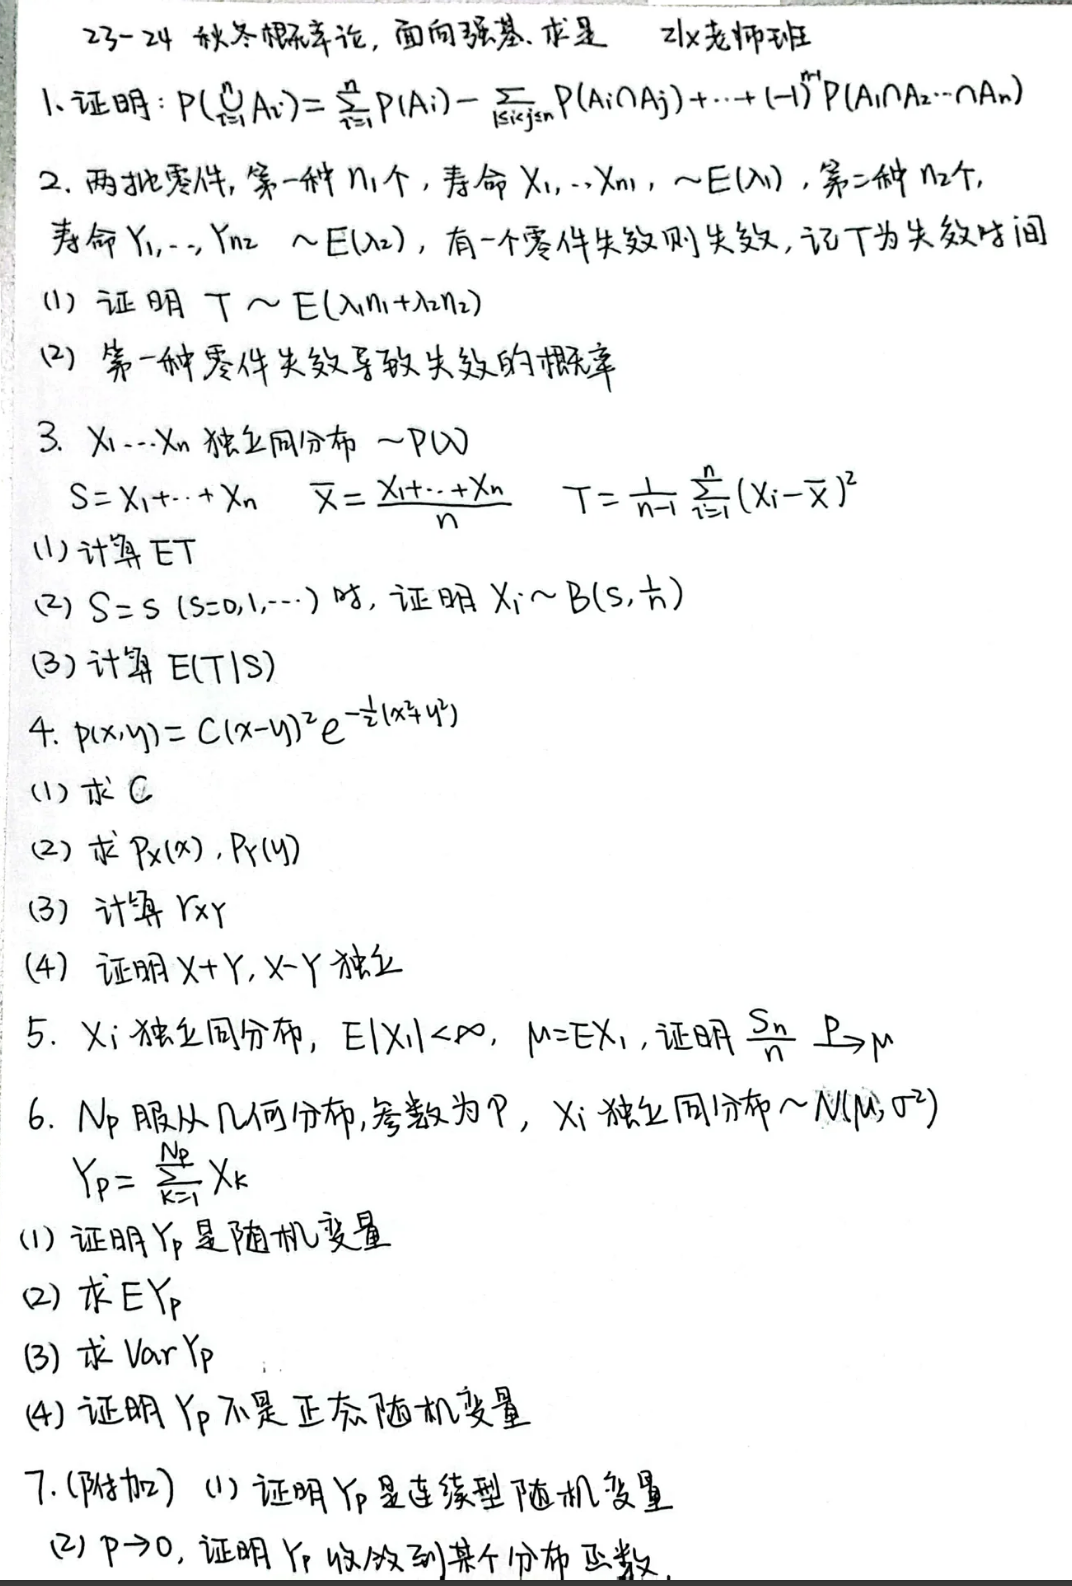 23-24 秋冬概率论, 面向强基、求是 zlx老师班
1、证明: P(⋃_{i=1}^{n} Ai) = ∑_{i=1}^{n} P(Ai) - ∑_{1≤i<j≤n} P(Ai∩Aj) + ··· + (-1)^{n-1} P(A1∩A2···∩An)
2. 两批零件, 第一种 n1个, 寿命 X1,..., Xn1, ~E(λ1), 第二种 n2个,
寿命 Y1,..., Yn2 ~E(λ2), 有一个零件失效则失效, 记T为失效时间
(1) 证明 T ~ E(λ1n1+λ2n2)
(2) 第一种零件失效导致失效的概率
3. X1···Xn 独立同分布 ~P(λ)
S = X1+···+Xn X̄ = (X1+···+Xn)/n T = 1/(n-1) ∑_{i=1}^{n} (Xi-X̄)²
(1) 计算 ET
(2) S=s (s=0,1,···) 时, 证明 Xi ~ B(s, 1/n)
(3) 计算 E(T|S)
4. p(x,y) = C(x-y)² e^{-1/2(x²+y²)}
(1) 求 C
(2) 求 PX(x), PY(y)
(3) 计算 rXY
(4) 证明 X+Y, X-Y 独立
5. Xi 独立同分布, E|X1|<∞, μ=EX1, 证明 Sn/n →^P μ
6. Np 服从几何分布, 参数为P, Xi 独立同分布 ~N(μ, σ²)
Yp = ∑_{k=1}^{Np} Xk
(1) 证明 Yp 是随机变量
(2) 求 EYp
(3) 求 Var Yp
(4) 证明 Yp 不是正态随机变量
7. (附加) (1) 证明 Yp 是连续型随机变量
(2) p→0, 证明 Yp 收敛到某个分布函数.